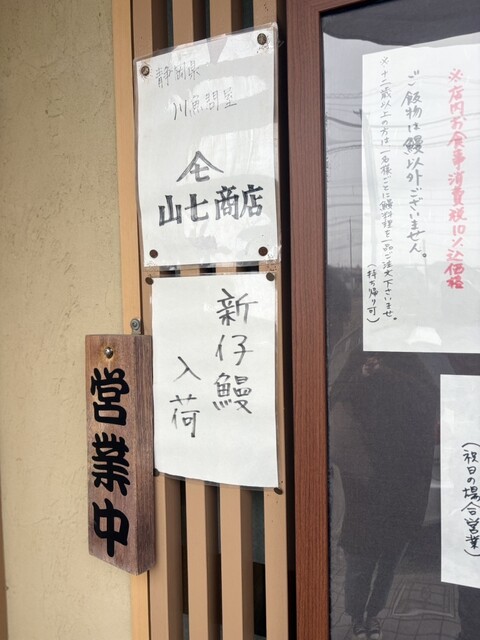 静岡県
川魚問屋
山七商店
新仔鰻
入荷
営業中
※店内お食事消費税10%込価格
ご飯物は鰻以外ございません。
※十二歳以上の方は一名様ごとに鰻料理を一品ご注文下さいませ。
(持ち帰り可)
(祝日の場合営業)